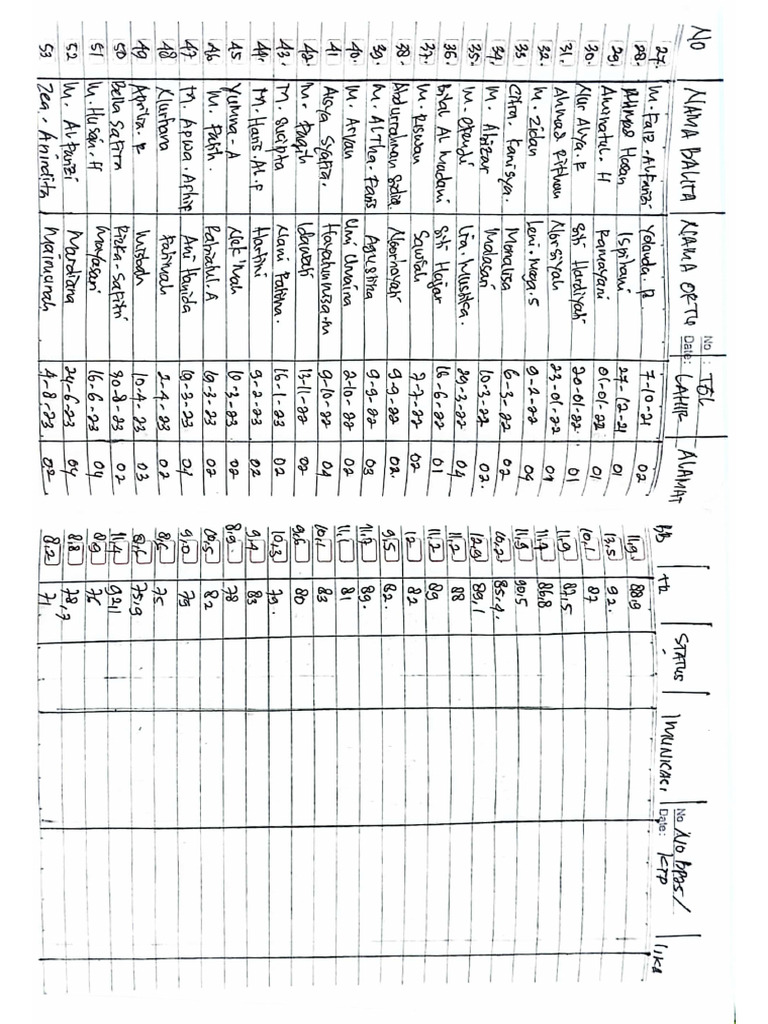 No : Date:
No Date:
NO NAMA BALITA NAMA ORTU TGL LAHIR ALAMAT BB TB STATUS IMUNISASI NO BPJS/ KTP
27. M. Faiz. Alfarizi Yolanda. R. 7-10-21 02 11,9 88,9
28. Ahmad Hasan Ispihani 27-12-21 01 13,5 92.
29. Aminatul. H Ramayani 01-01-22 01. 10,1 87
30. Nur Alya. R Siti Hardiyah 20-01-22 01 11,9 87,5
31. Ahmad Rifkan Norsiyah 23-01-22 04 11,4 86,8
32. M. Zidan Leni. Maya. S 9-2-22 04 11,9 90,5
33. Citra. Kanisya. Monalisa 6-3-22 02 10,2 85,4.
34. M. Abizar Malasari 10-3-22 02. 12,9 89,1
35. M. Efendi Lia. Mustika. 29-3-22 04 11,2 88
36. Bilal Al Madani Siti Hajar 16-6-22 01 11,2 89
37. M. Riswan Sawiah 7-7-22 02 12 82
38. Abdurrahman Noorhayati 9-9-22 02. 9,5 82.
39. M. Altha. Faris Agustina 9-9-22 03 11,7 89.
40. M. Aryan Uni 2-10-22 02 11,1 81
41. Aisya Syafira. Hayatunnisa. 9-10-22 04 10,1 83
42. M. Raqib Idawati 13-11-22 02 9,6 80
43. M. Sucipta Nani Ratna. 16-1-23 02 10,3 79.
44. M. Haris. Al. F Hartini 9-2-23 02 9,4 83
45. Yumna - A Nek'mah 10-3-23 02 8,9. 78
46 M. Fatih. Rabiatul. A 19-3-23 02 10,5 82
47. M. Arfha Ani Hamida 19-3-23 04 9,0 79
48 Fatimah 2-4-23 02 8,5 75
49 Aprilia. R Misbah 10-4-23 03 8,6 75,9
50 Bella Safira Rizka - Safitri 30-8-23 02 11,4 92,1
51 M. Husan. H Mayasari 16-6-23 04 8,9 76
52 M. Alfarizi Mardiana 24-6-23 04 8,8 78,7
53 Zea. Anindita Maimunah 4-8-23. 02 8,2 71.